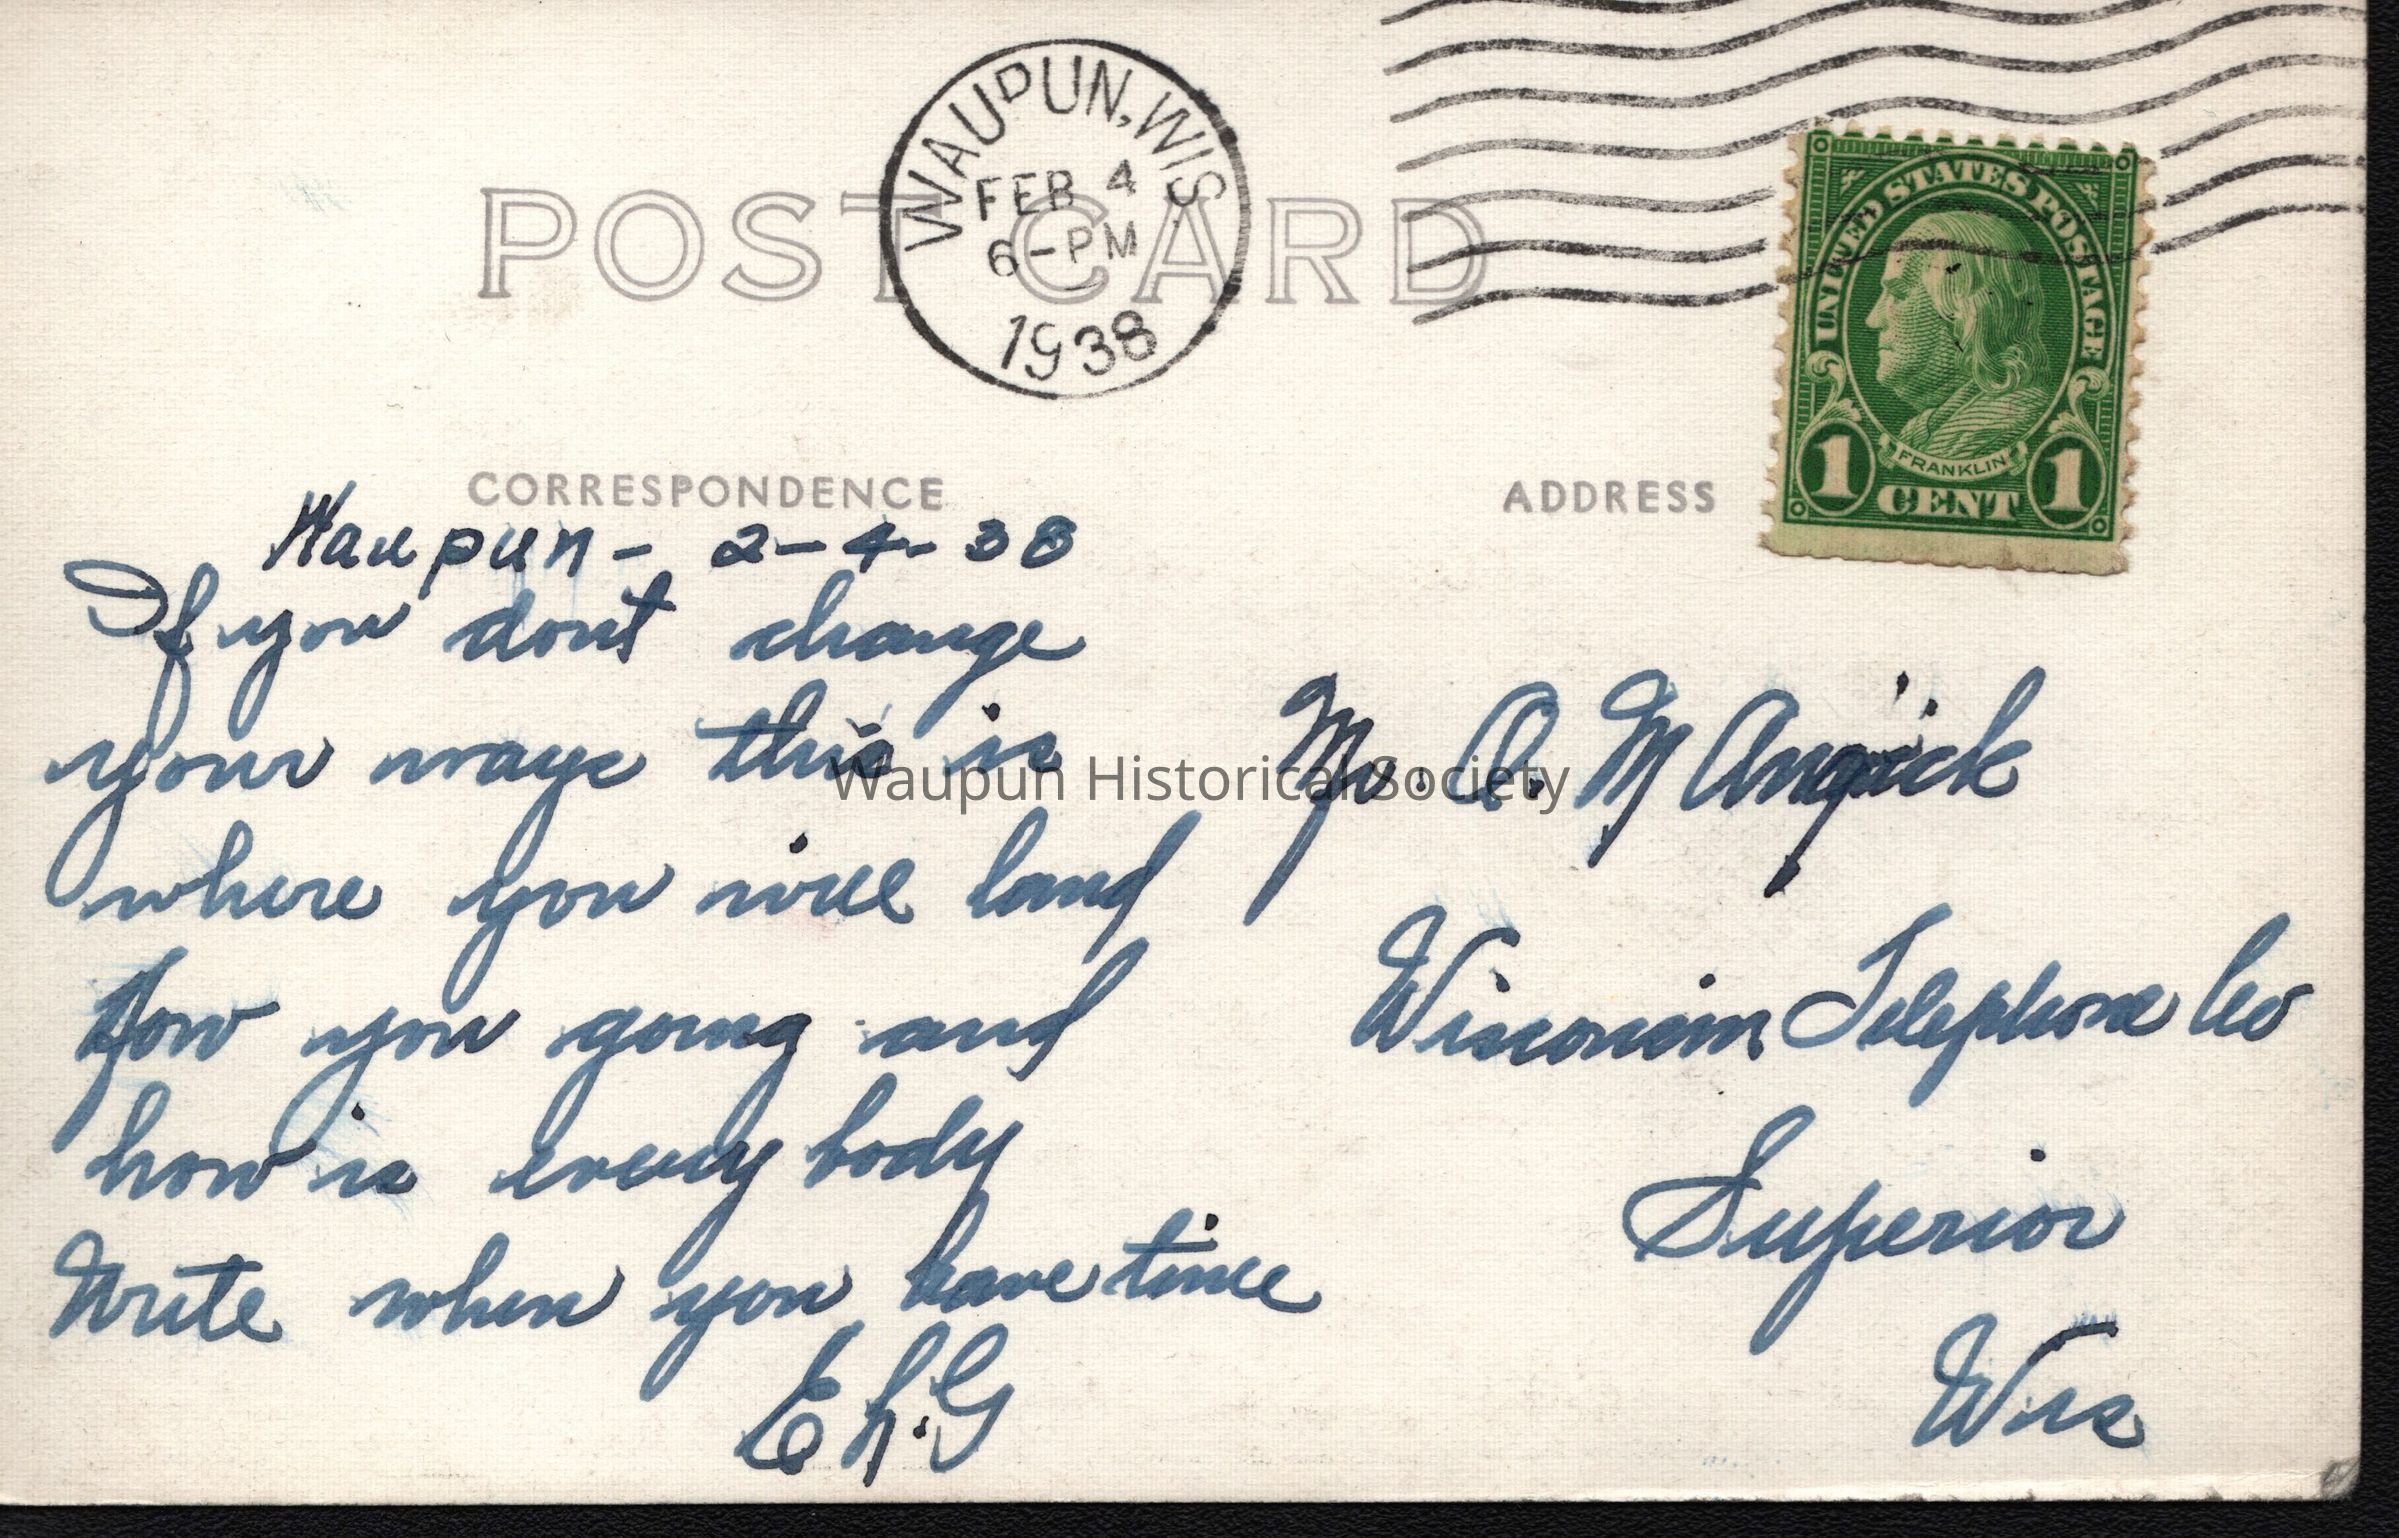 WAUPUN, WIS.
FEB 4
6-PM
1938
POST CARD
UNITED STATES POSTAGE
FRANKLIN
1 CENT 1
CORRESPONDENCE
ADDRESS
Waupun - 2-4-38
If you dont change
your ways this is
where you will land
How you going and
how is every body
Write when you have time
E.G
Mr. A. M
Wisconsin Telephone Co
Superior
Wis
Waupun Historical Society